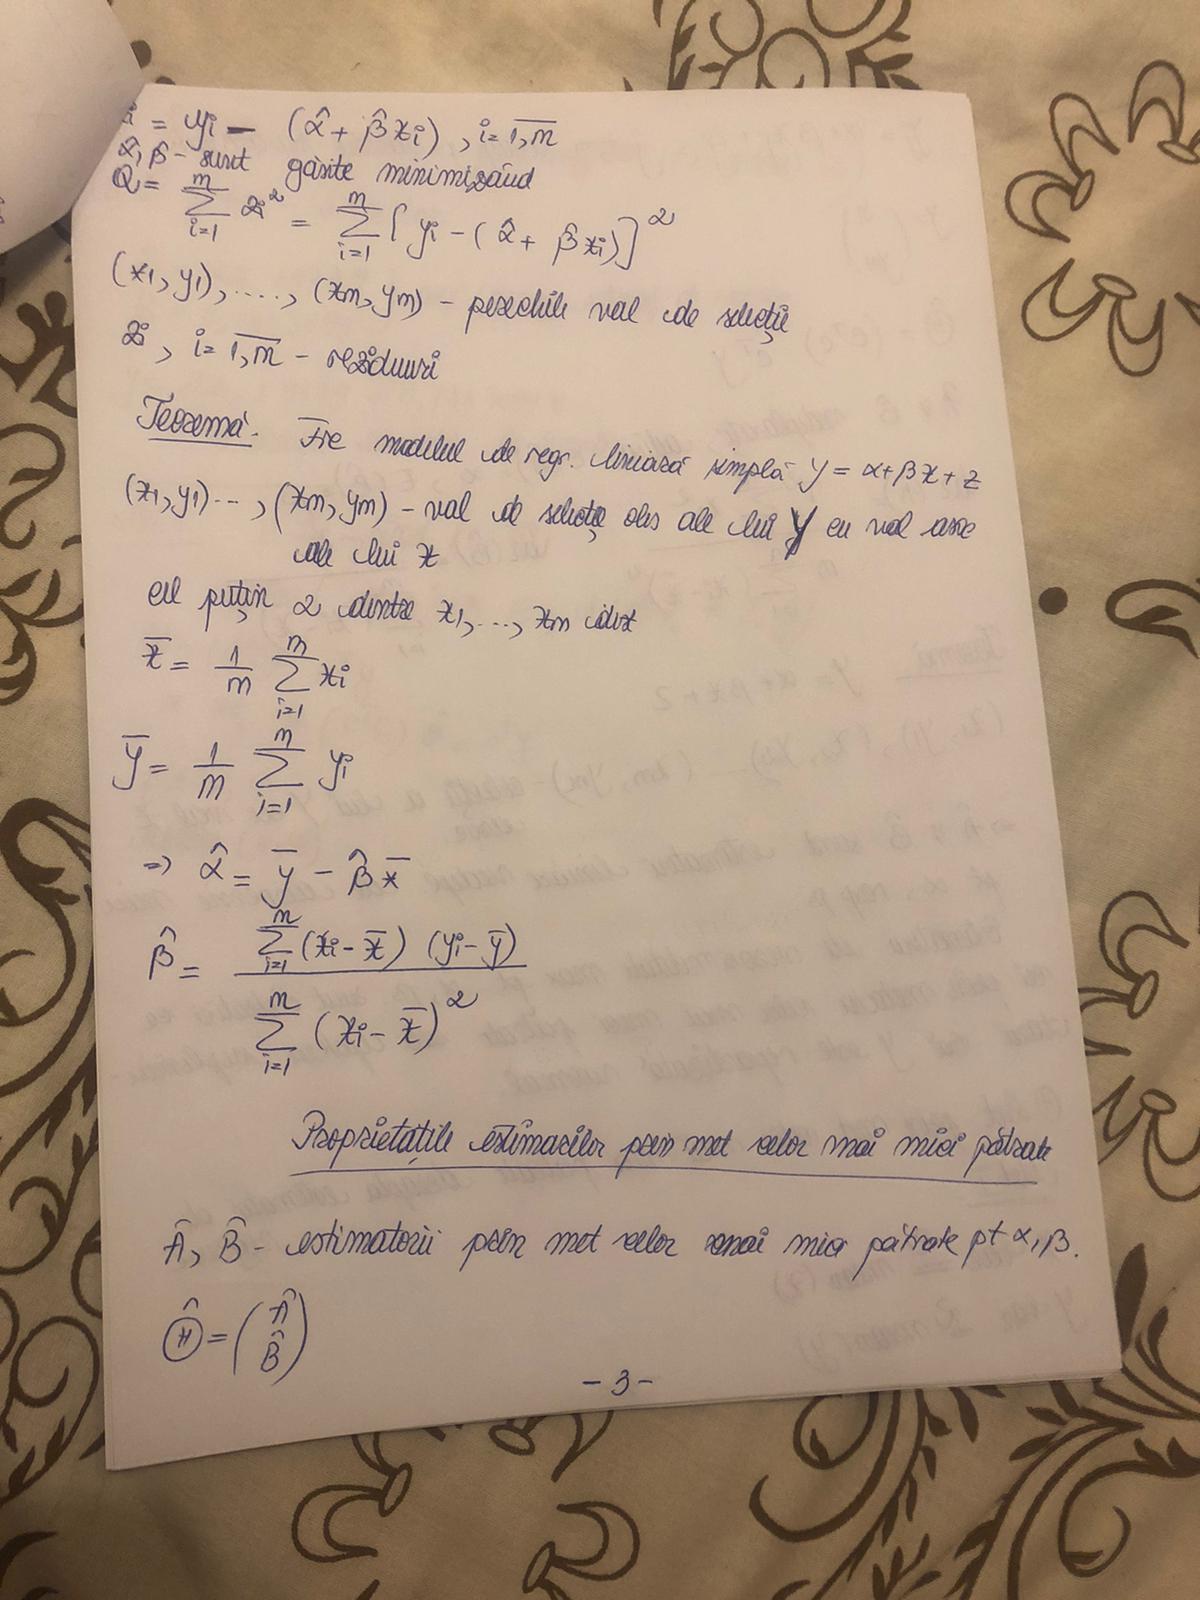 i = yi - (α̂ + β̂ xi), i = 1,n
α̂, β̂ - sunt găsite minimizând
Q = Σ_{i=1}^{n} zi² = Σ_{i=1}^{n} [yi - (α̂ + β̂ xi)]²
(x1, y1), ...., (xn, yn) - perechile val de selecție
zi, i = 1,n - reziduuri
Teoremă. Fie modelul de regr. liniară simplă y = α + βx + z
(x1, y1) ..., (xn, yn) - val de selecție obs ale lui Y cu val asoc
ale lui x
cel puțin 2 dintre x1, ..., xn dist
x̄ = 1/n Σ_{i=1}^{n} xi
ȳ = 1/n Σ_{i=1}^{n} yi
=> α̂ = ȳ - β̂ x̄
β̂ = Σ_{i=1}^{n} (xi - x̄) (yi - ȳ) / Σ_{i=1}^{n} (xi - x̄)²
Proprietățile estimărilor prin met celor mai mici pătrate
Â, B̂ - estimatorii prin met celor mai mici pătrate pt α, β.
Θ̂ = (Â B̂)
- 3 -